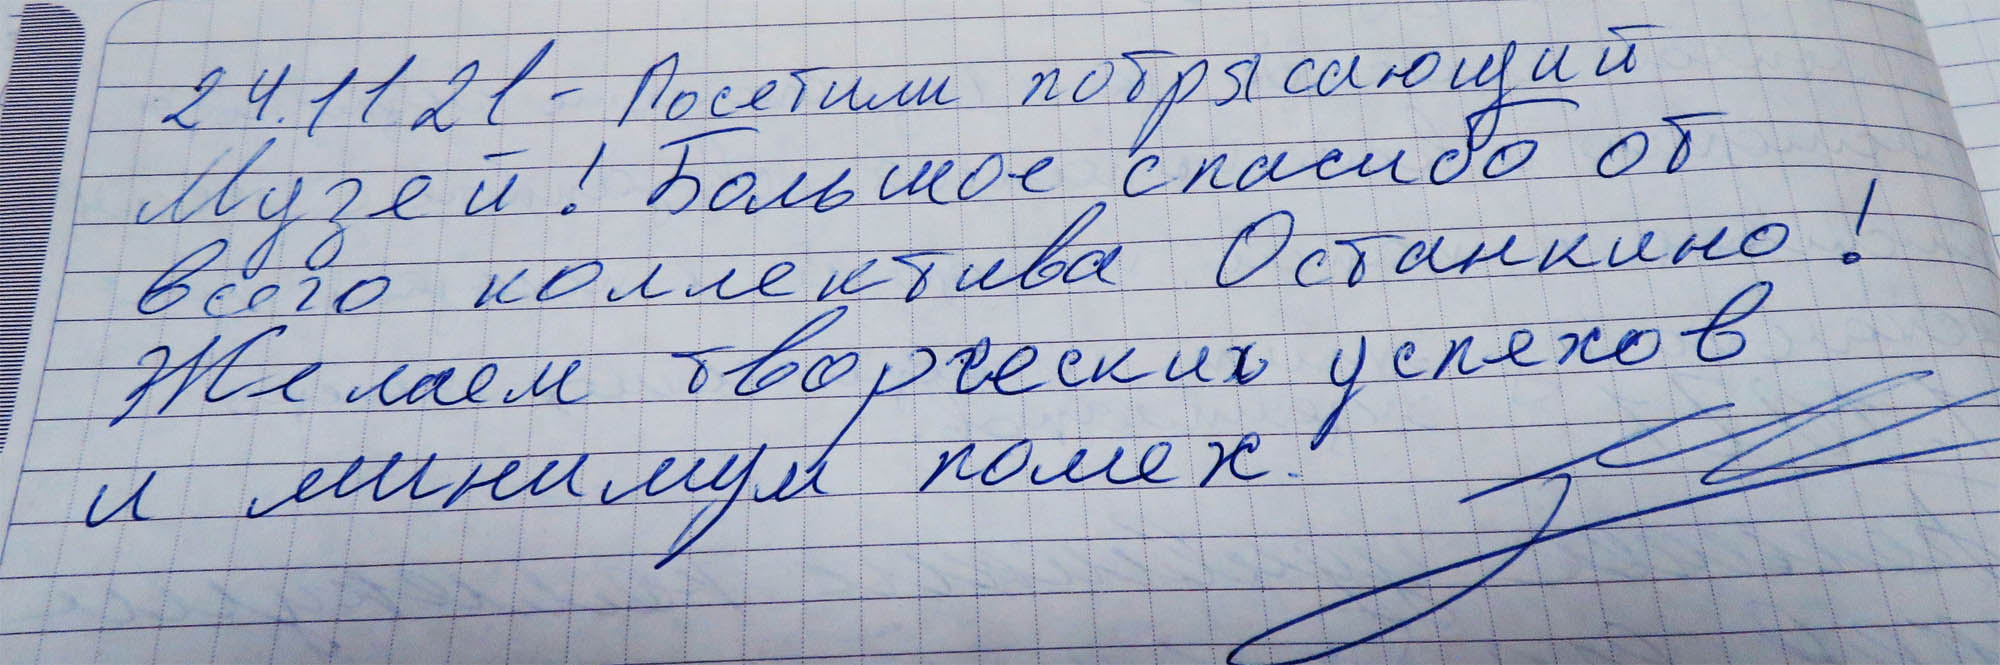 24.11 21 - Посетили потрясающий
Музей! Большое спасибо от
всего коллектива Останкино!
Желаем творческих успехов
и минимум помех.